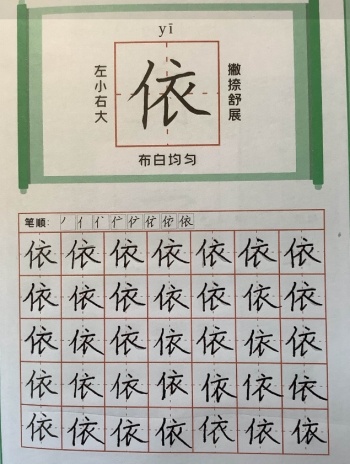 yī
左小右大
依
撇捺舒展
布白均匀
笔顺:
依 依 依 依 依 依 依
依 依 依 依 依 依 依
依 依 依 依 依 依 依
依 依 依 依 依 依 依
依 依 依 依 依 依 依